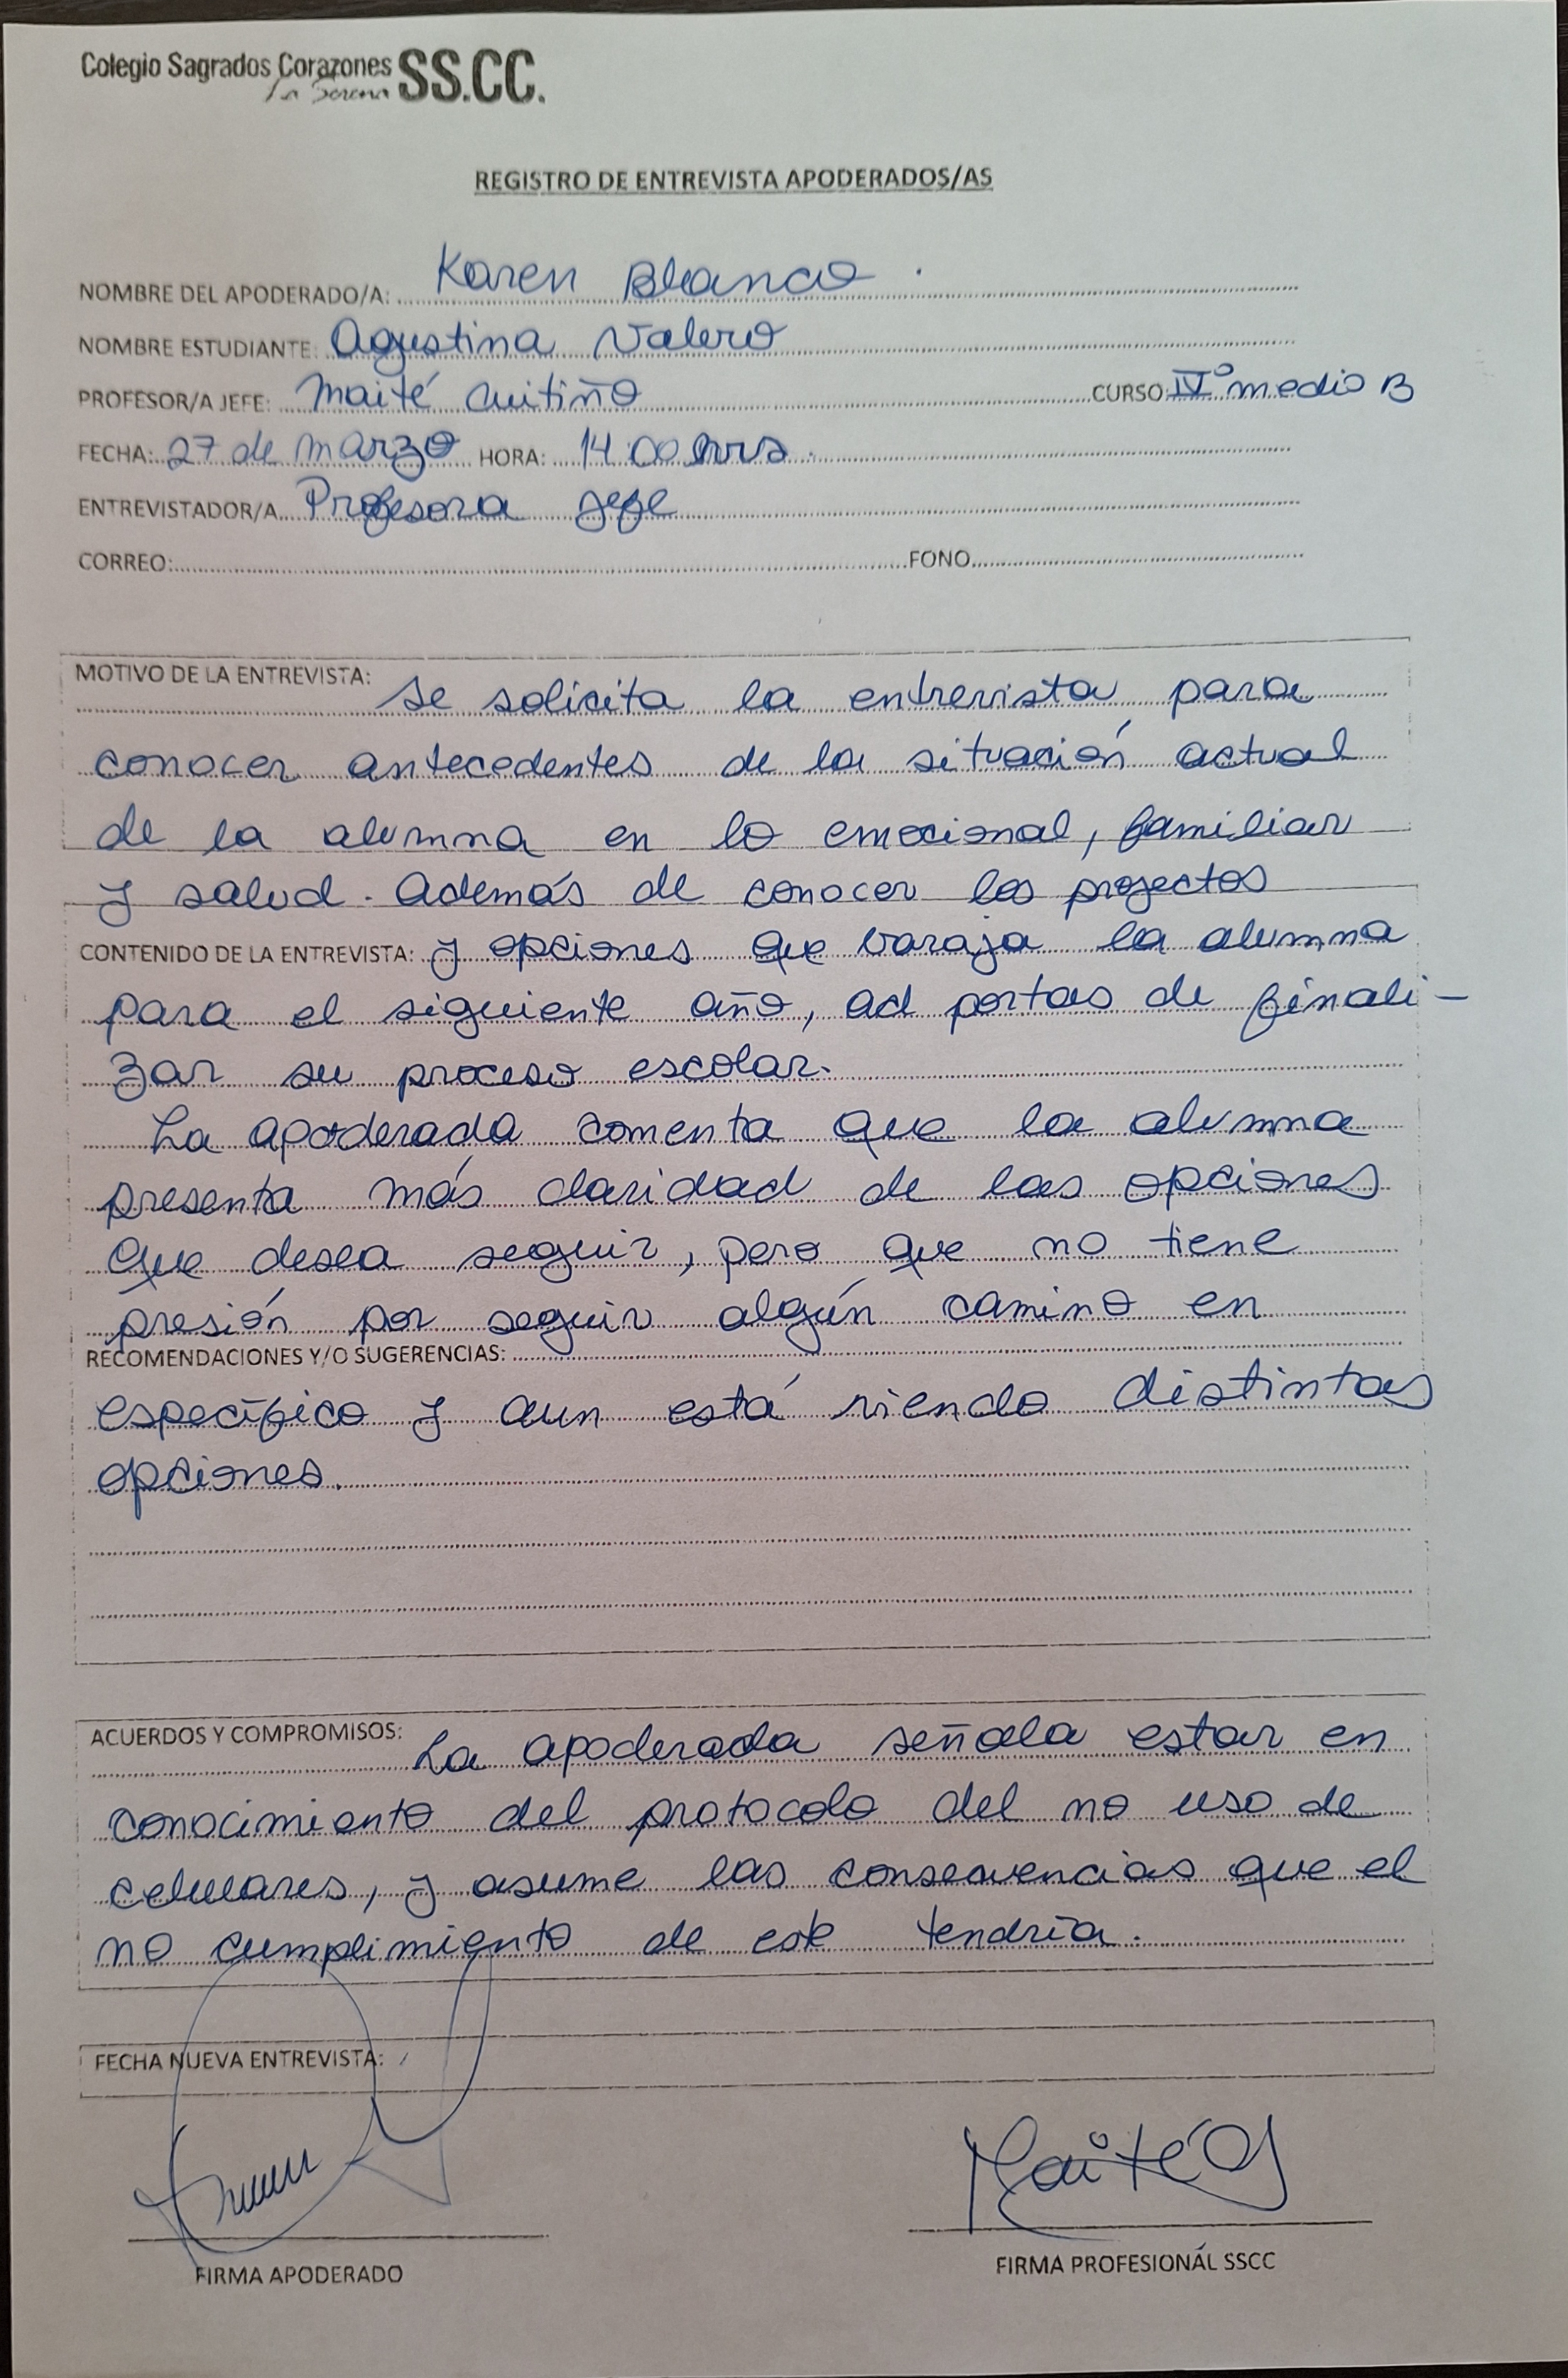 Colegio Sagrados Corazones SS.CC.
La Serena
REGISTRO DE ENTREVISTA APODERADOS/AS
NOMBRE DEL APODERADO/A: Karen Blanco
NOMBRE ESTUDIANTE: Agustina Valero
PROFESOR/A JEFE: Maité Cuitiño CURSO: IV° medio B
FECHA: 27 de marzo HORA: 14:00 hrs.
ENTREVISTADOR/A Profesora Jefe
CORREO: FONO
MOTIVO DE LA ENTREVISTA: Se solicita la entrevista para
conocer antecedentes de la situación actual
de la alumna en lo emocional, familiar
y salud. Además de conocer los proyectos
CONTENIDO DE LA ENTREVISTA: y opciones que baraja la alumna
para el siguiente año, ad portas de finali-
zar su proceso escolar.
La apoderada comenta que la alumna
presenta más claridad de las opciones
que desea seguir, pero que no tiene
presión por seguir algún camino en
RECOMENDACIONES Y/O SUGERENCIAS:
específico y aun está viendo distintas
opciones.
ACUERDOS Y COMPROMISOS: La apoderada señala estar en
conocimiento del protocolo del no uso de
celulares, y asume las consecuencias que el
no cumplimiento de este tendría.
FECHA NUEVA ENTREVISTA: /
Maité
FIRMA APODERADO FIRMA PROFESIONAL SSCC